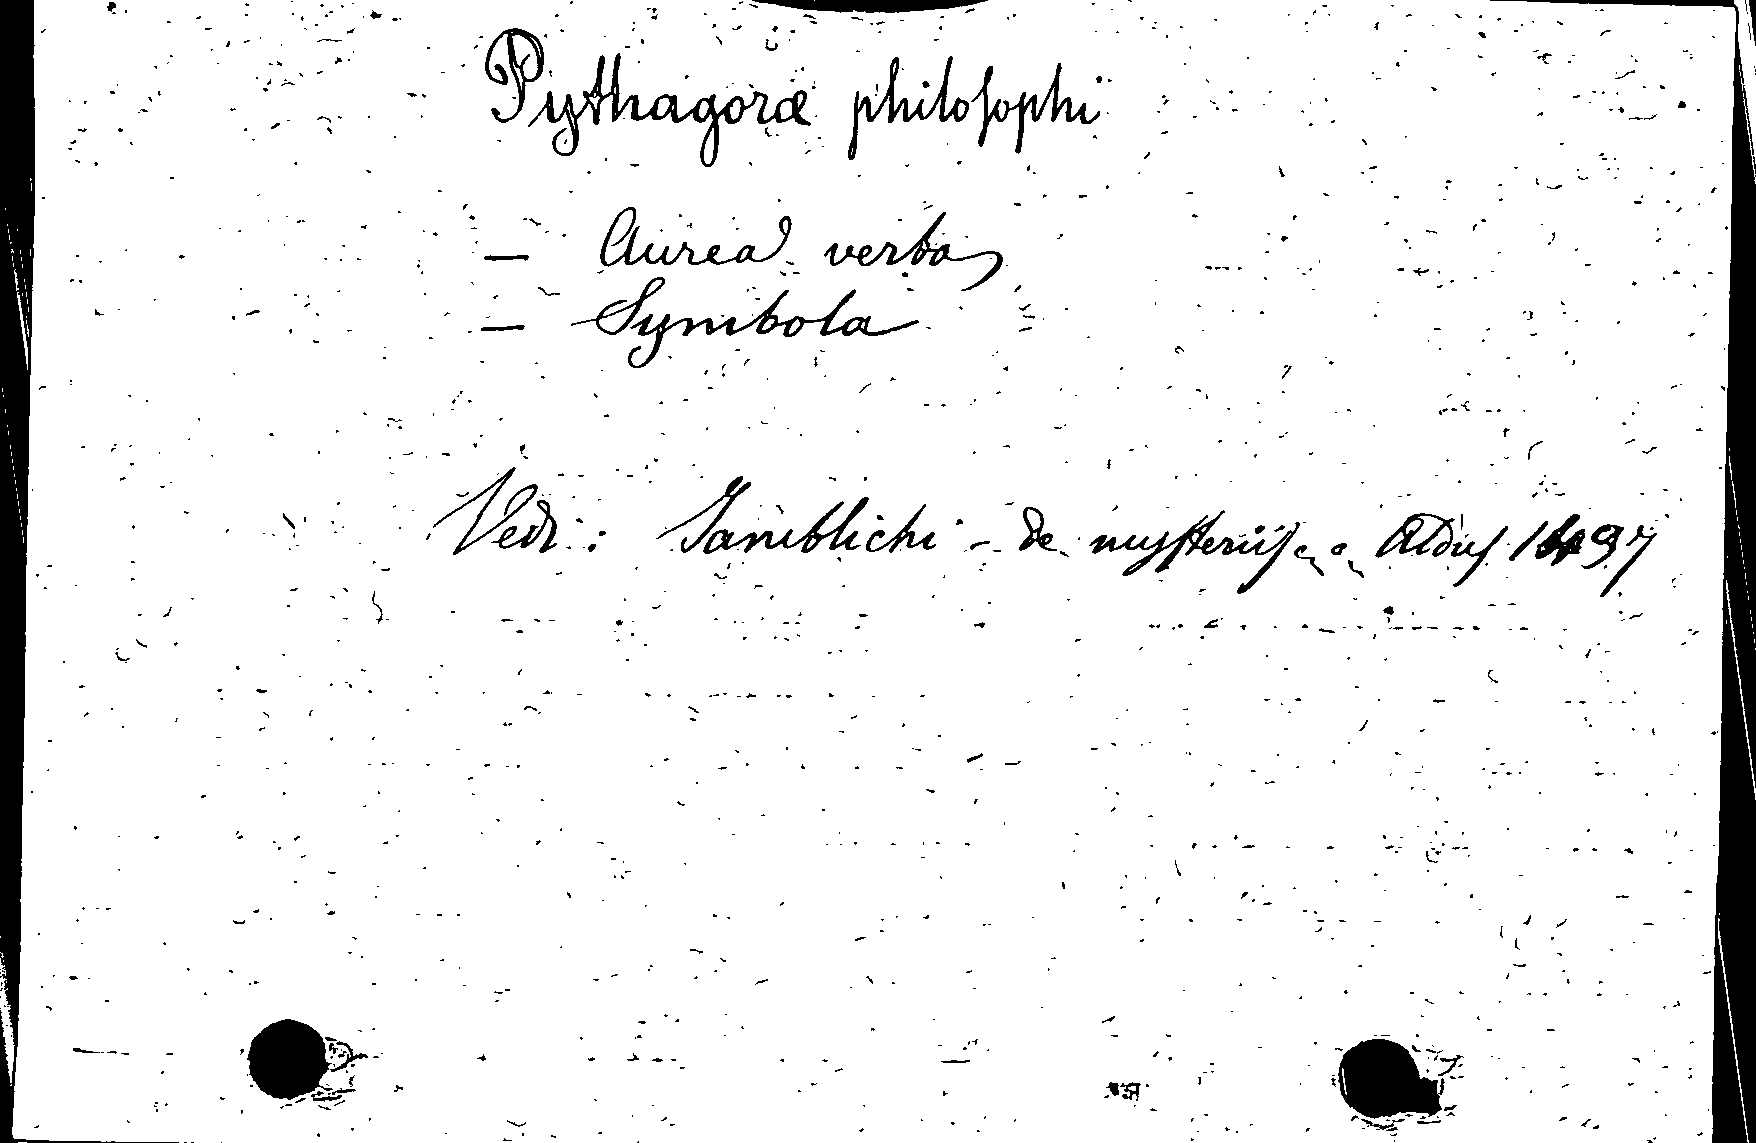 Pythagoræ philosophi
— Aurea verba
— Symbola
Vedi: Jamblichi - de mysteriis... Aldus 1497